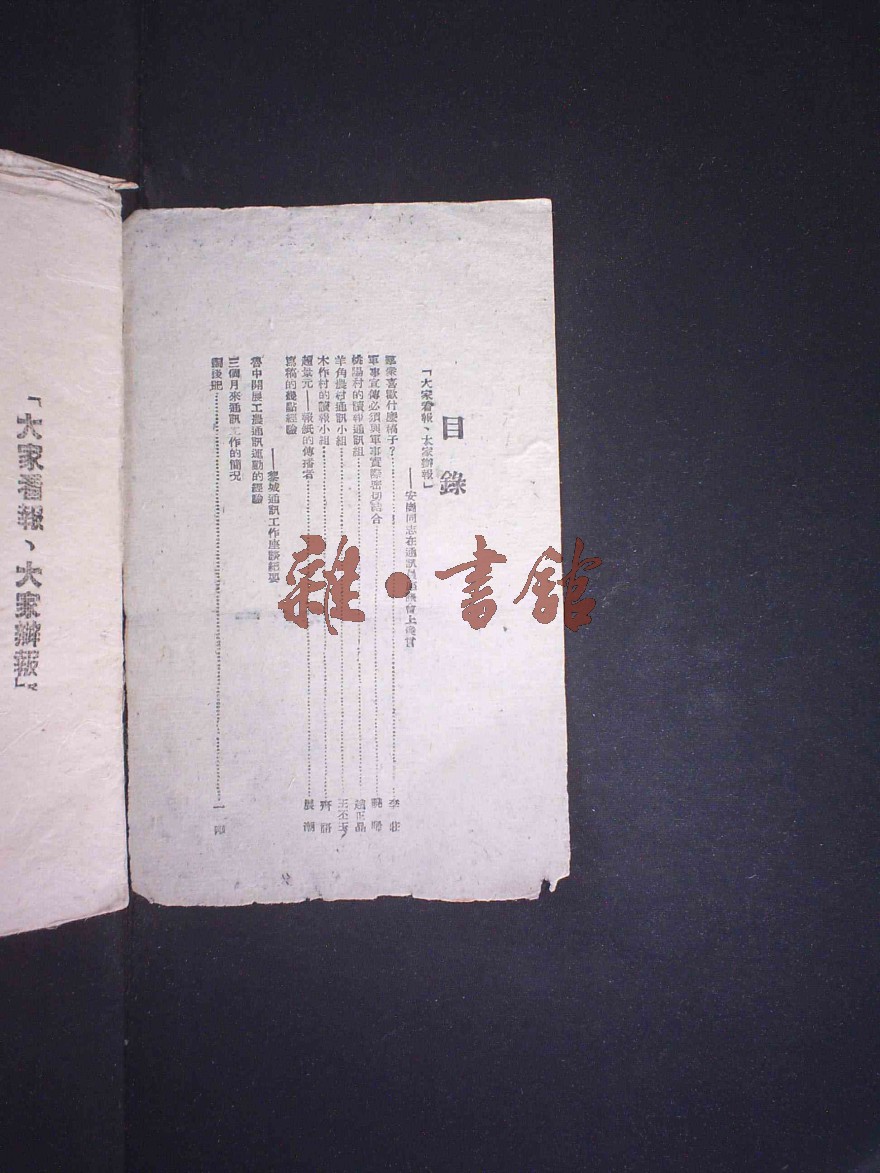 目錄
「大家看報、大家辦報」
——安崗同志在通訊員 會上發言
羣衆喜歡什麽稿子?……李莊
軍事宣傳必須與軍事實際密切結合……
桃陽村的讀報通訊組……趙正晶
羊角農村通訊小組……王丕玉
木作村的讀報小組……齊語
趙景元——報紙的傳播者……展潮
寫稿的幾點經驗
——黎城通訊工作座談紀要
魯中開展工農通訊運動的經驗
三個月來通訊工作的簡况
編後記……一 卿
「大家看報、大家辦報」
雜·書館